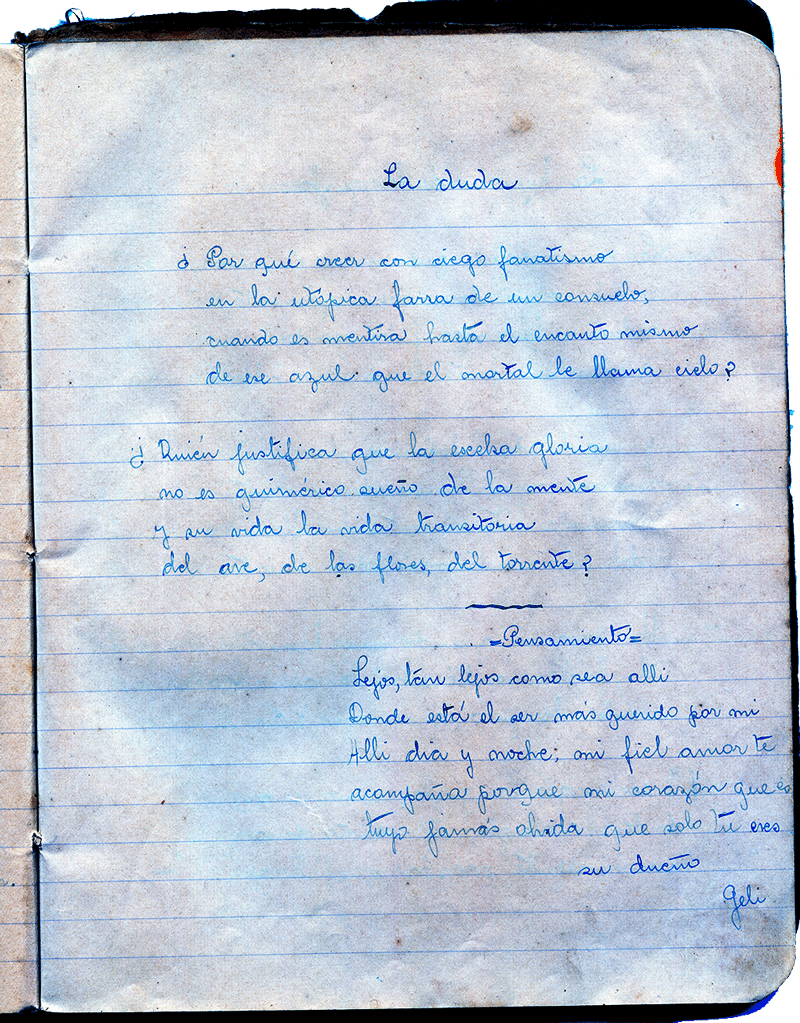 La duda
¿ Por qué creer con ciego fanatismo
en la utópica farra de un consuelo,
cuando es mentira hasta el encanto mismo
de ese azul que el mortal le llama cielo?
¿ Quién justifica que la excelsa gloria
no es quimérico sueño de la mente
y su vida la vida transitoria
del ave, de las flores, del torrente?
=Pensamiento=
Lejos, tán lejos como sea alli
Donde está el ser más querido por mi
Alli dia y noche; mi fiel amor te
acompaña porque mi corazón que es
tuyo jamás olvida que solo tú eres
su dueño
Geli